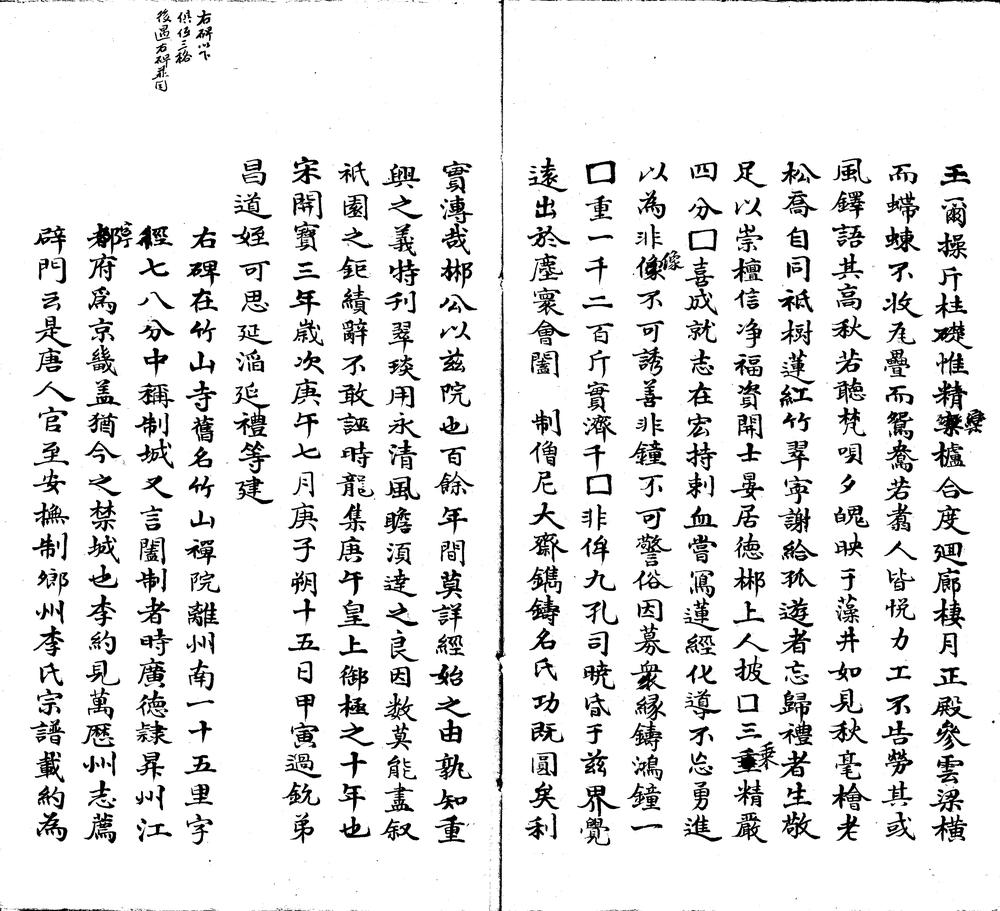 王爾操斤柱礎惟精寀櫨合度廻廊棲月正殿參雲梁橫
窠
而螮蝀不收瓦疊而鴛鴦若翥人皆悅力工不告勞其或
風鐸語其高秋若聽梵唄夕魄映于藻井如見秋毫檜老
松喬自同祗樹蓮紅竹翠寕謝給孤遊者忘歸禮者生敬
足以崇檀信净福資開士晏居德郴上人披口三重精嚴
乘
四分囗喜成就志在宏持刺血嘗寫蓮經化導不忘勇進
以為非像不可誘善非鐘不可警俗因募衆緣鑄鴻鐘一
像
囗重一千二百斤實濟千囗非侔九孔司曉昏于兹界覺
遠出於塵寰會闔 制僧尼大齋鐫鑄名氏功既圓矣利
實溥哉郴公以兹院也百餘年間莫詳經始之由孰知重
興之義特刊翠琰用永清風瞻須達之良因数莫能盡叙
祇園之鉅績辭不敢誣時龍集庚午皇上御極之十年也
宋開寶三年歲次庚午七月庚子朔十五日甲寅過銃弟
昌道姪可思延滔延禮等建
右碑在竹山寺舊名竹山禪院離州南一十五里字
徑七八分中稱制城又言闔制者時廣德隷昇州江
都府爲京畿盖猶今之禁城也李約見萬歷州志薦
寧
辟門云是唐人官至安撫制鄉州李氏宗譜載約為
右碑以下
俱伍三格
後遇右碑並同